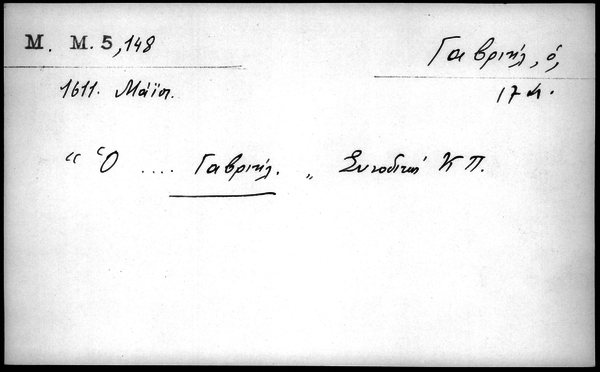 Μ. Μ. 5, 148
Γαβριήλ, ὁ,
1611. Μάϊος.
17 Μ.
“ Ὁ .... Γαβριήλ. „ Συνοδική Κ Π.